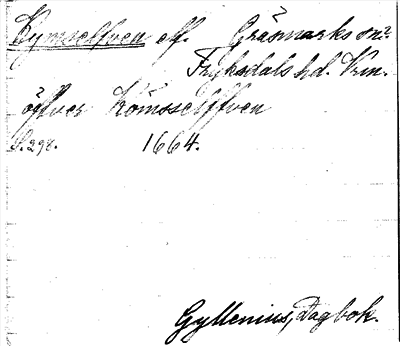 Kymselfven elf. Gräsmarks sn.
Fryksdals hd. Vrm.
öfwer Kömsselffven
S. 298. 1664.
Gyllenius, Dagbok.